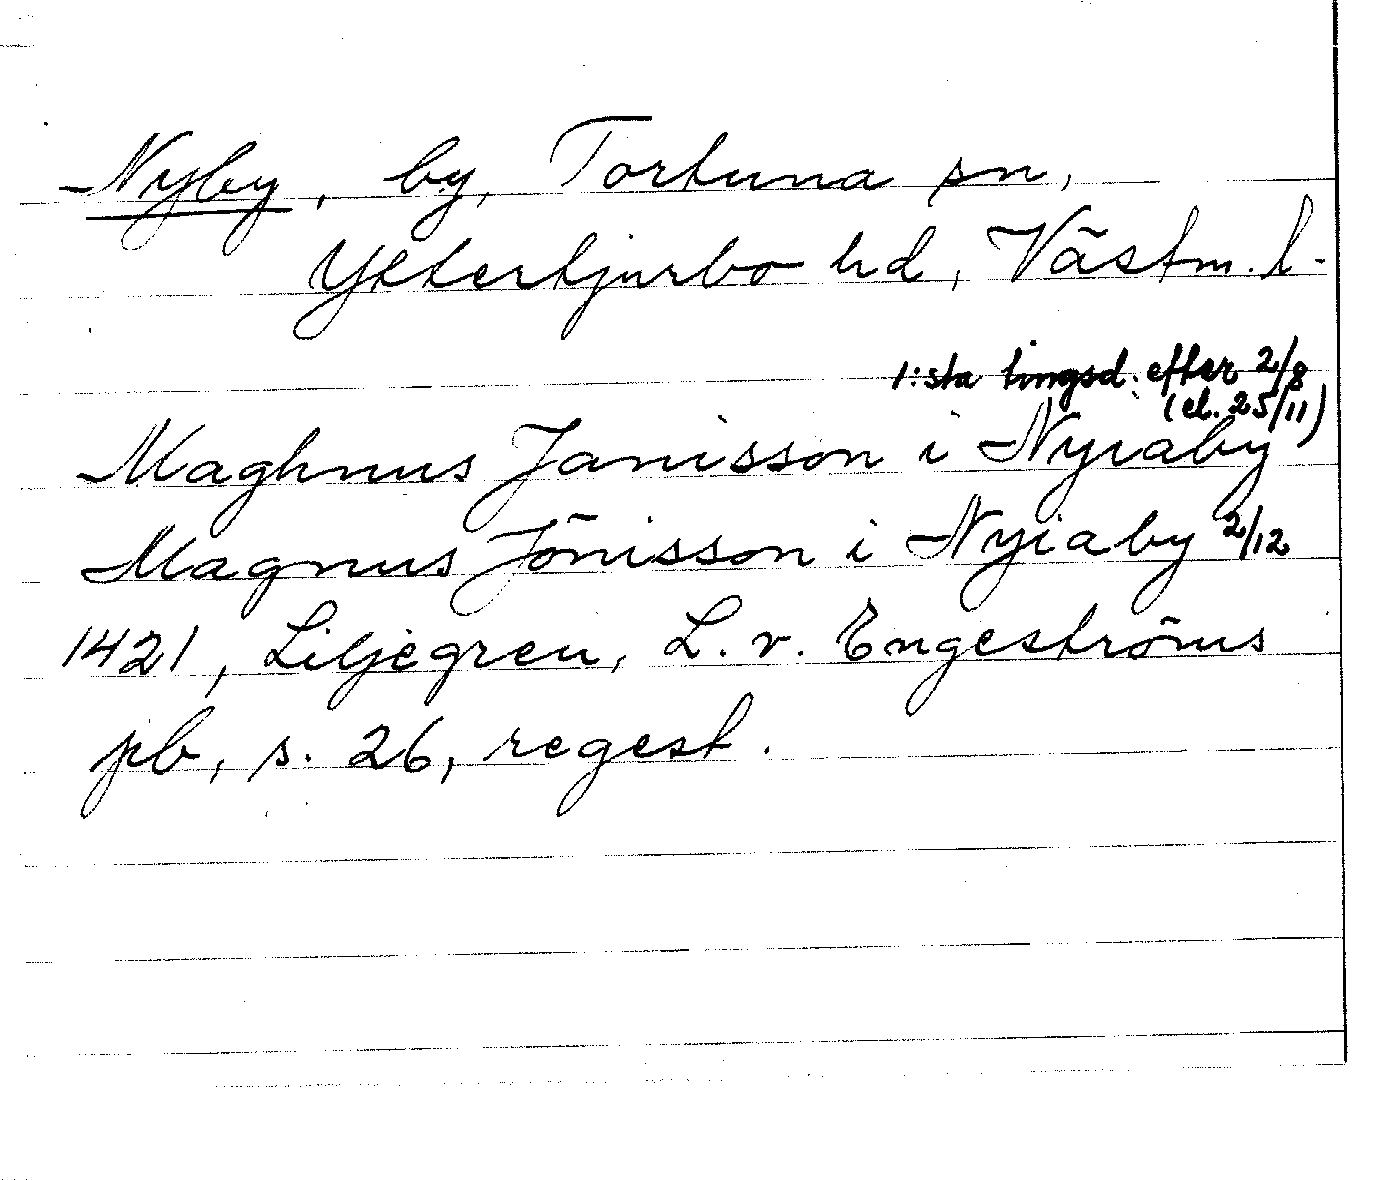 Nyby, by, Tortuna sn,
Yttertjurbo hd, Västm. l.
1:sta tingsd. efter 2/8
(el. 25/11)
Maghnus Janisson i Nyiaby
Magnus Jönisson i Nyiaby 2/12
1421, Liljegren, L. v. Engeströms
pb, s. 26, regest.